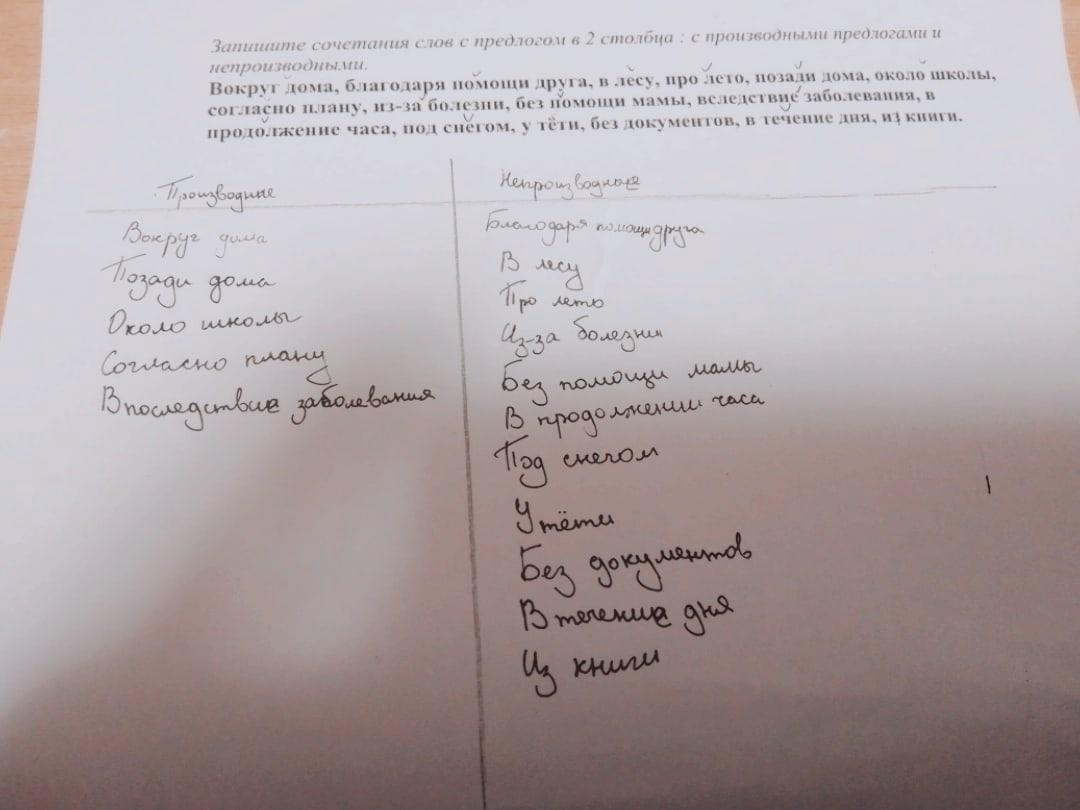 Запишите сочетания слов с предлогом в 2 столбца : с производными предлогами и
непроизводными.
Вокруг дома, благодаря помощи друга, в лесу, про лето, позади дома, около школы,
согласно плану, из-за болезни, без помощи мамы, вследствие заболевания, в
продолжение часа, под снегом, у тёти, без документов, в течение дня, из книги.
Производные
Вокруг дома
Позади дома
Около школы
Согласно плану
Впоследствие заболевания
Непроизводные
Благодаря помощи друга
В лесу
Про лето
Из-за болезни
Без помощи мамы
В продолжении часа
Под снегом
У тёти
Без документов
В течение дня
Из книги